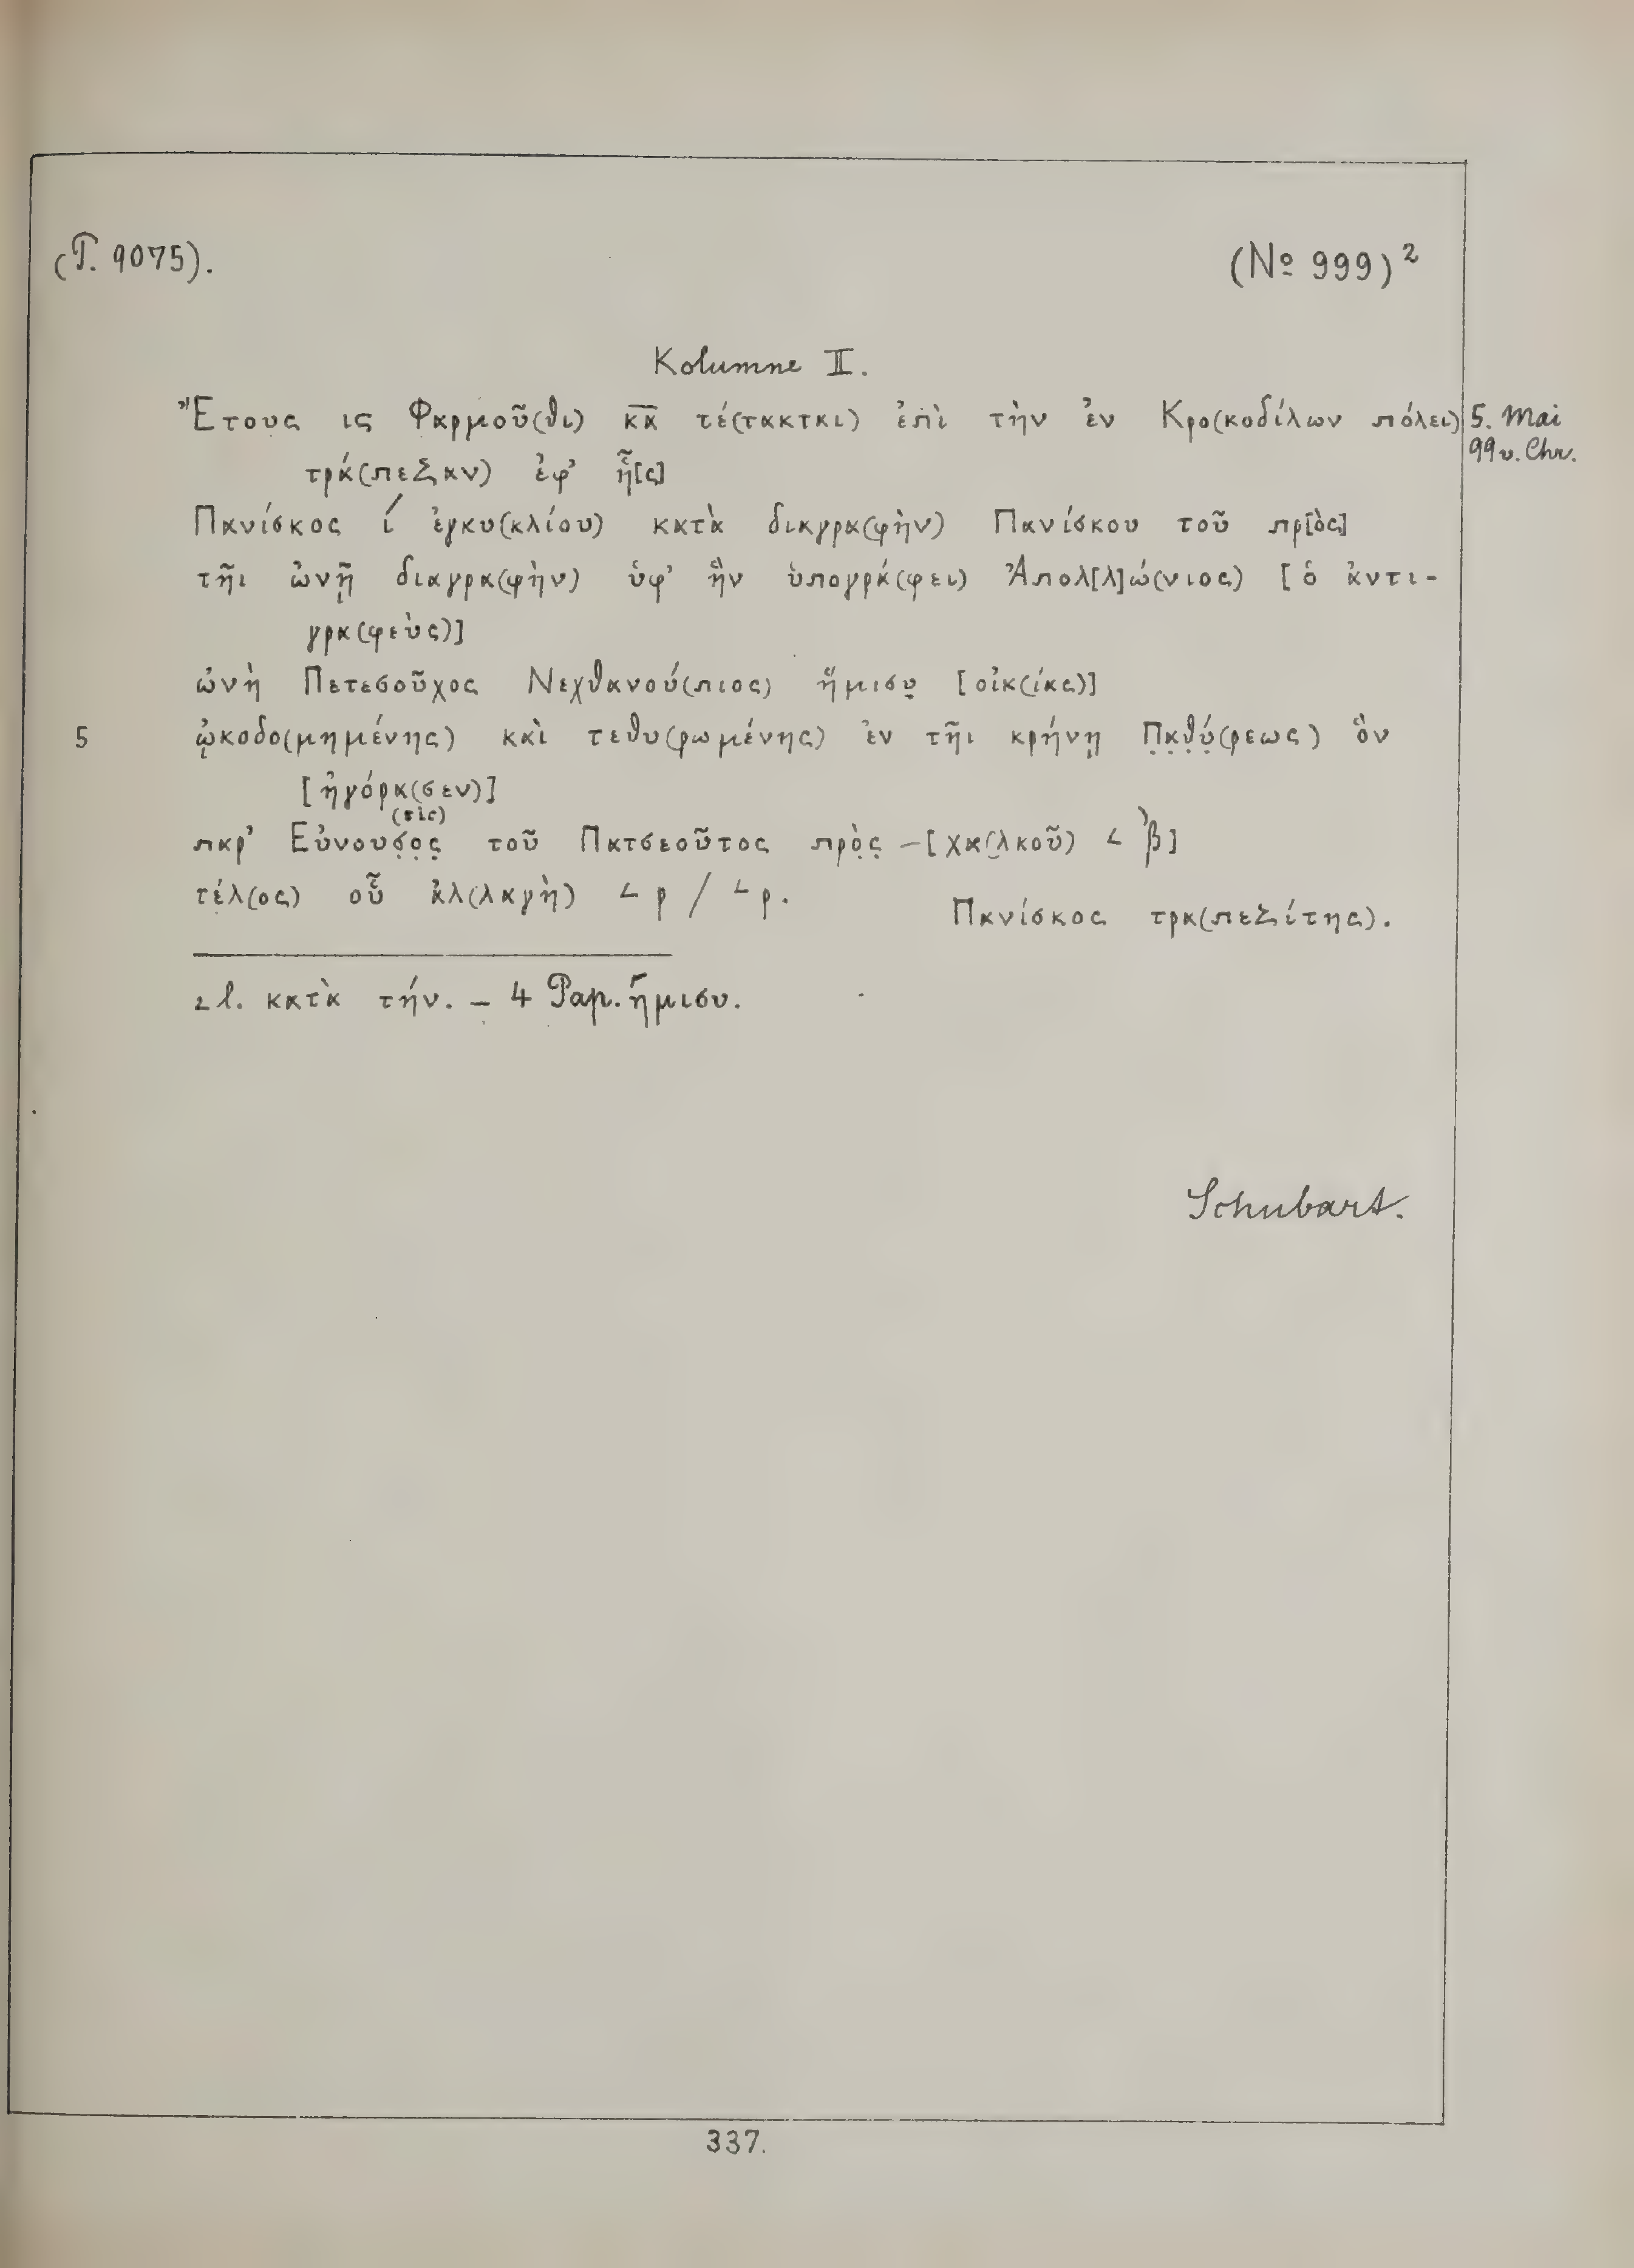 (P. 9075).
(No 999)²
Kolumne II.
Ἔτους ις Φαρμοῦ(θι) κ̅α̅ τέ(τακται) ἐπὶ τὴν ἐν Κρο(κοδίλων πόλει) 5. Mai
99 v. Chr.
τρά(πεζαν) ἐφ' ἧ[ς]
Πανίσκος ί ἐγκυ(κλίου) κατὰ διαγρα(φὴν) Πανίσκου τοῦ πρ[ὸς]
τῆι ὠνῇ διαγρα(φὴν) ὑφ' ἣν ὑπογρά(φει) Ἀπολ[λ]ώ(νιος) [ὁ ἀντι-
γρα(φεὺς)]
ὠνὴ Πετεσοῦχος Νεχθανού(πιος) ἥμισυ̣ [οἰκ(ίας)]
5 ᾠκοδο(μημένης) καὶ τεθυ(ρωμένης) ἐν τῆι κρήνῃ Π̣α̣θ̣ύ̣(ρεως) ὃν
[ἠγόρα(σεν)]
(sic)
παρ' Εὐνουσ̣ο̣ς̣ τοῦ Πατσεοῦτος πρὸ̣ς̣ –[χα(λκοῦ) ∠ ͵β]
τέλ(ος) οὗ ἀλ(λαγὴ) ∠ ρ / ∠ ρ.
Πανίσκος τρα(πεζίτης).
2 l. κατὰ τήν. – 4 Pap. ἥμισυ.
Schubart.
337.